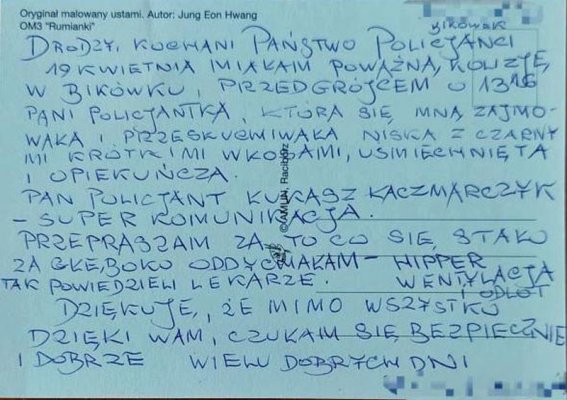 Oryginał malowany ustami. Autor: Jung Eon Hwang
OM3 "Rumianki"
BIKÓWEK
DRODZY, KOCHANI PAŃSTWO POLICJANCI
19 KWIETNIA MIAŁAM POWAŻNĄ, KOLIZJĘ,
W BIKÓWKU, PRZED GRÓJCEM O 13:16
PANI POLICJANTKA, KTÓRA SIĘ MNĄ ZAJMO-
WAŁA I PRZESŁUCHIWAŁA NISKA Z CZARNY
MI KRÓTKIMI WŁOSAMI, UŚMIECHNIĘTA
I OPIEKUŃCZA.
PAN POLICJANT ŁUKASZ KACZMARCZYK
– SUPER KOMUNIKACJA.
PRZEPRASZAM ZA TO CO SIĘ STAŁO
ZA GŁĘBOKO ODDYCHAŁAM – HIPPER
WENTYLACJA
TAK POWIEDZIELI LEKARZE.
I ODLOT
DZIĘKUJĘ, ŻE MIMO WSZYSTKO
DZIĘKI WAM, CZUŁAM SIĘ BEZPIECZNIE
I DOBRZE WIELU DOBRYCH DNI
© AMUN, Racibórz